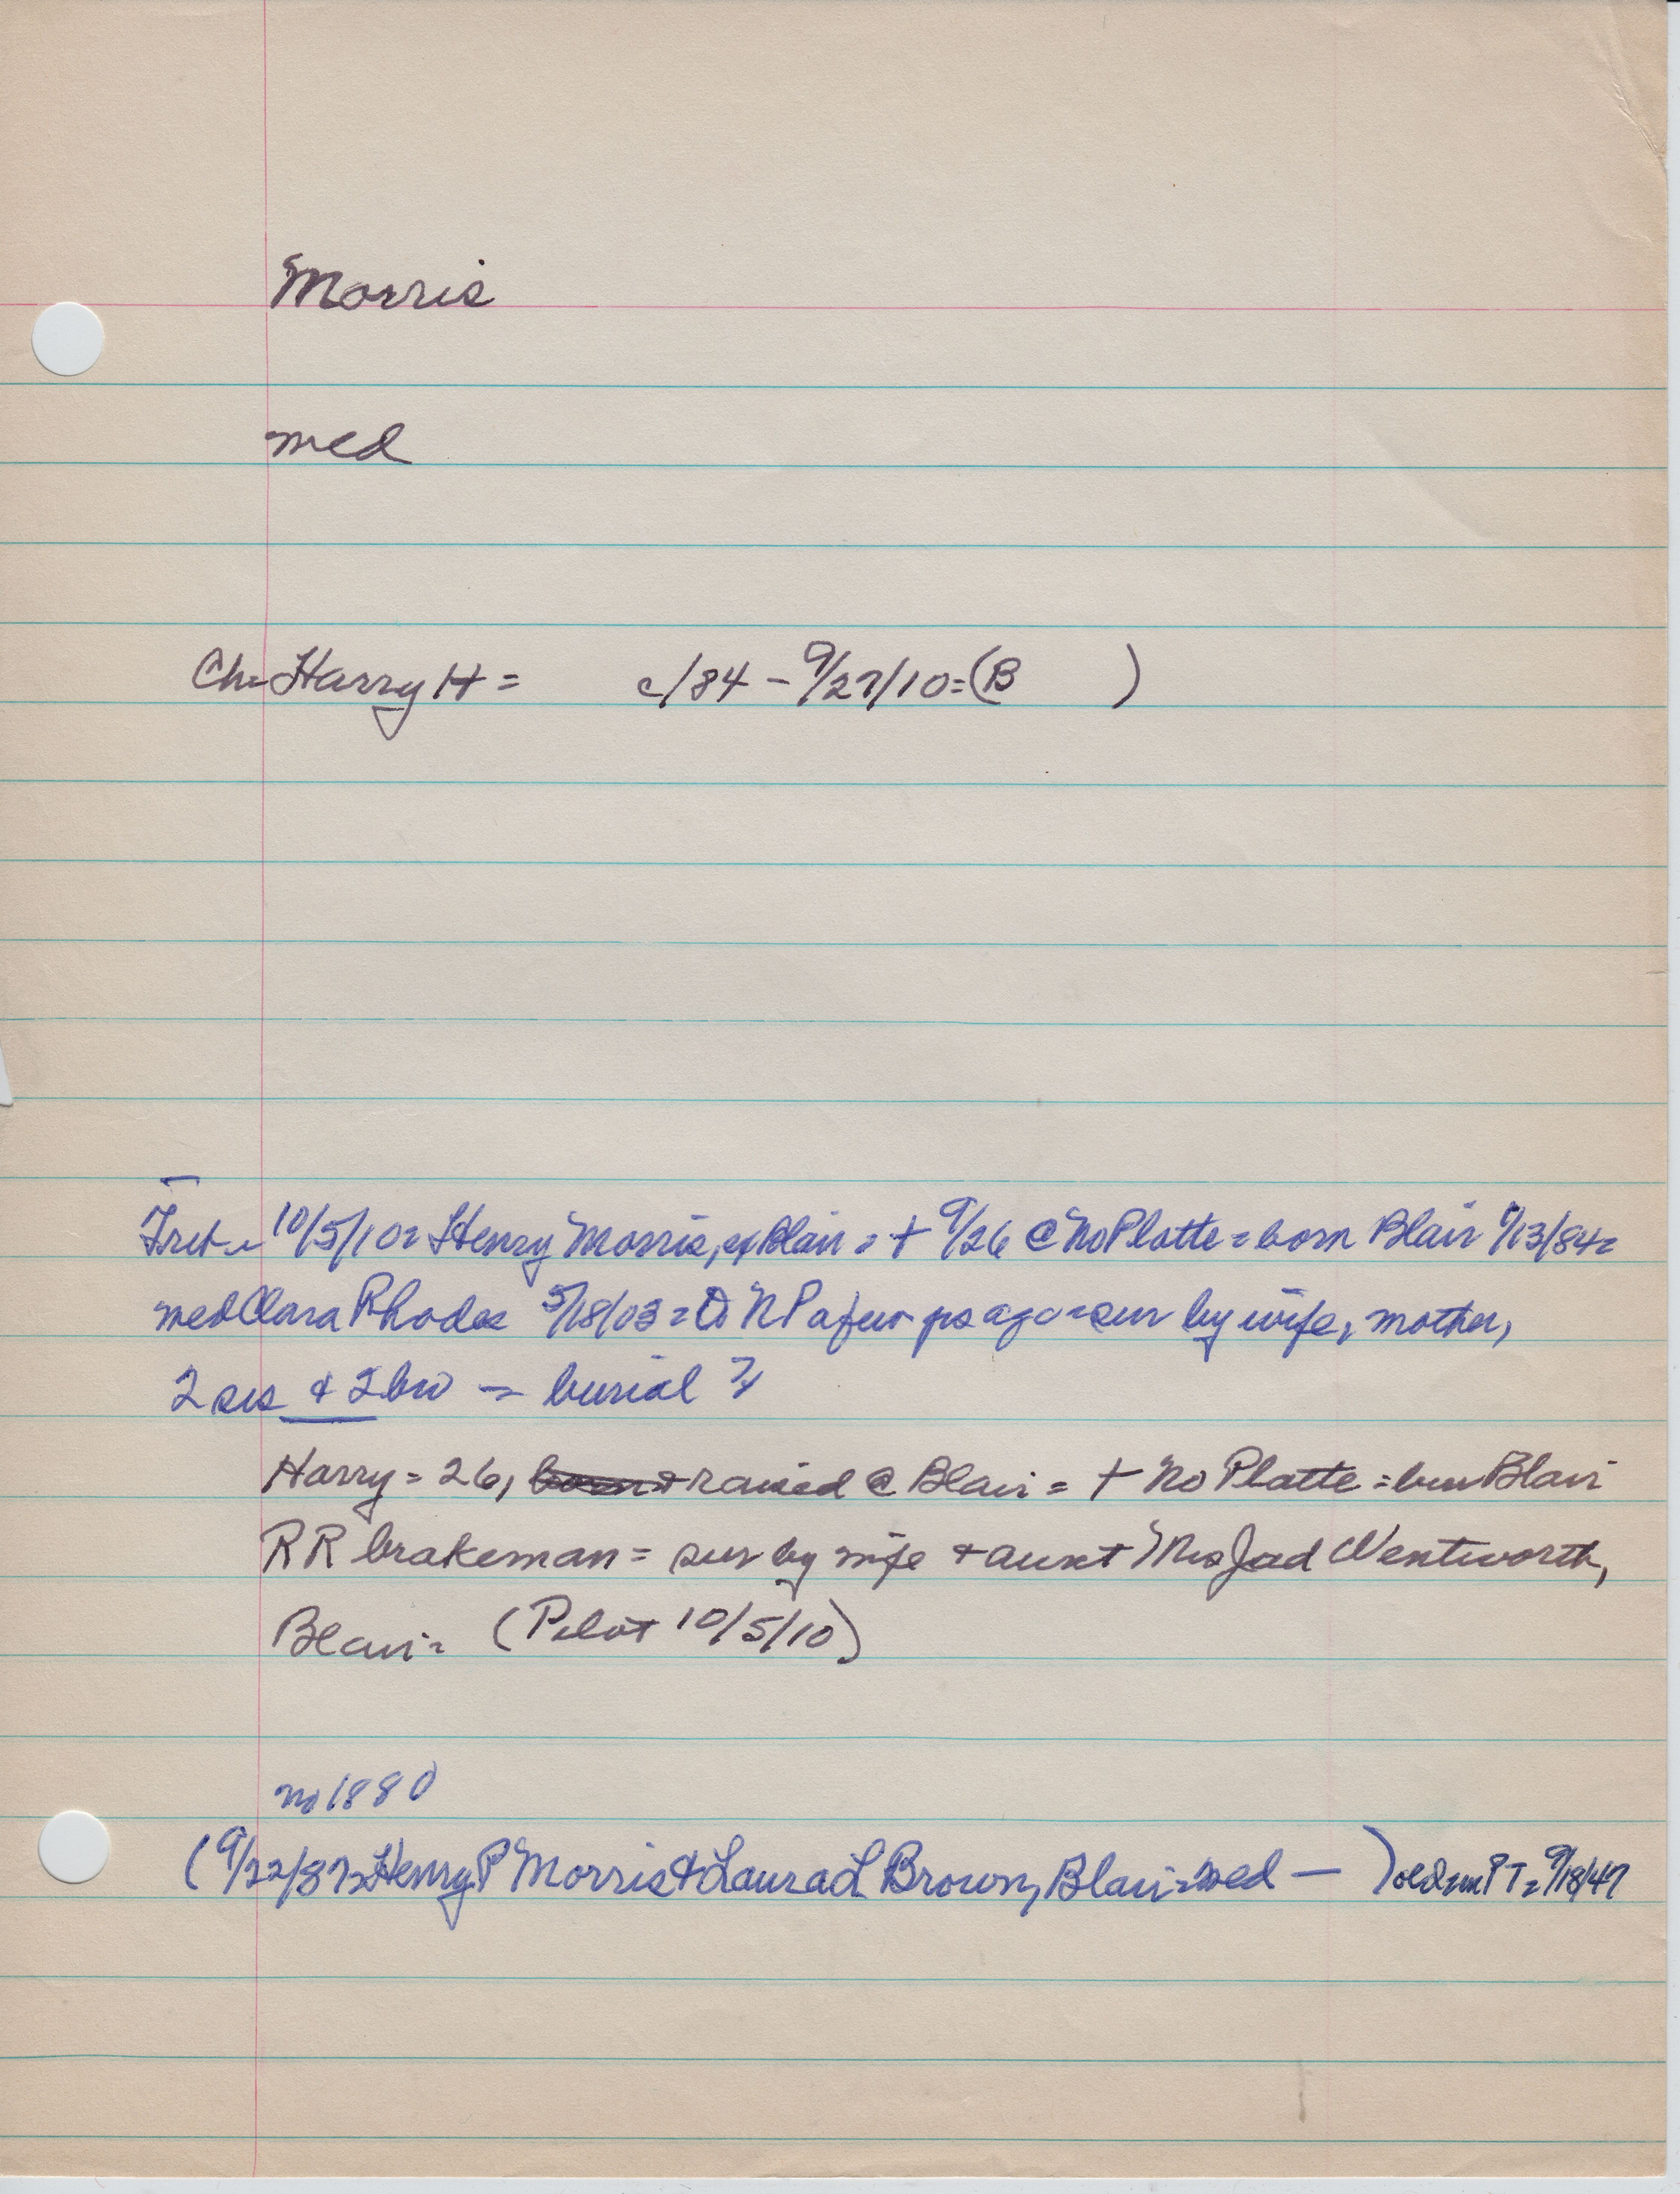 Morris
med
Ch= Harry H = c/84 - 9/27/10 = (B )
10/5/10 = Henry Morris, of Blair = + 9/26 @ No Platte = born Blair 9/13/84 =
med Clara Rhodes 5/18/03 = NP a few yrs ago = sur by wife, mother,
2 sis & 2 bro = burial ?
Harry = 26, raised @ Blair = + No Platte = bur Blair
RR brakeman = sur by wife + aunt Mrs Jad Wentworth,
Blair = (Pilot 10/5/10)
no 1880
(9/22/87 = Henry P Morris & Laura L Brown, Blair = med — ) old PT = 9/18/47